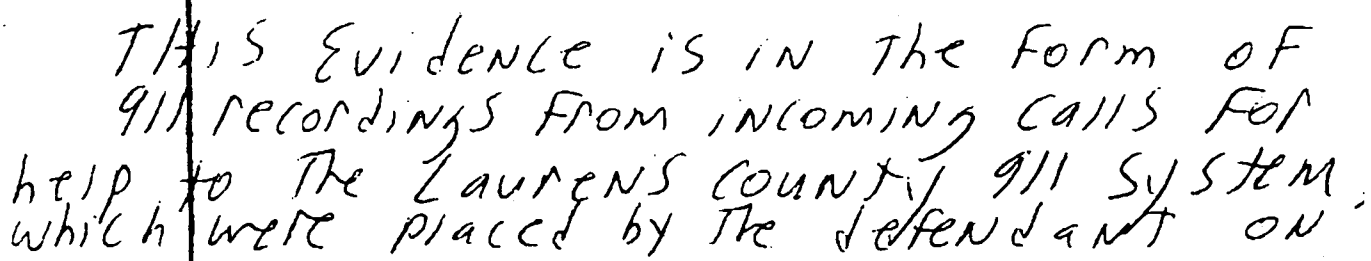 THis Evidence is in The Form of
911 recordings From incoming calls For
help to The Laurens county 911 System,
which were placed by The defendant on